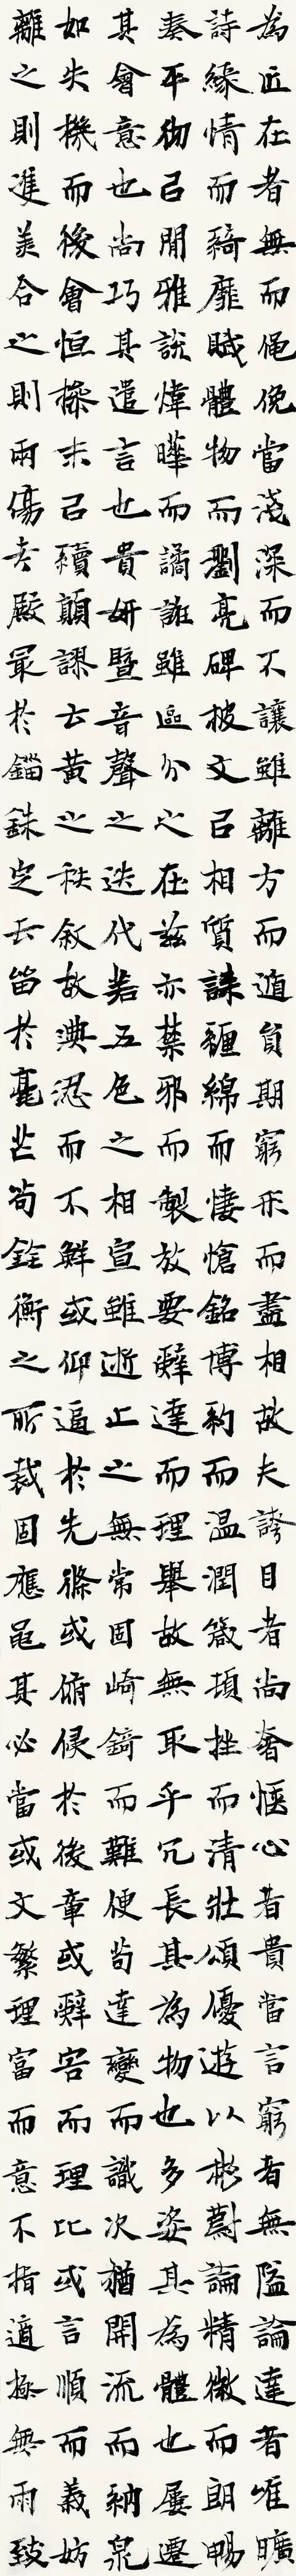 為匠在者無而僶俛當淺深而不讓雖離方而遁員期窮形而盡相故夫誇目者尚奢愜心者貴當言窮者無隘論達者唯曠
詩緣情而綺靡賦體物而瀏亮碑披文㠯相質誄纏綿而悽愴銘博約而温潤箴頓挫而清壯頌優遊以彬蔚論精微而朗暢
奏平徹㠯閒雅說煒曄而譎誑雖區分之在茲亦禁邪而製放要辭達而理舉故無取乎冗長其為物也多姿其為體也屢遷
其會意也尚巧其遣言也貴妍暨音聲之迭代若五色之相宣雖逝止之無常固崎錡而難便苟達變而識次猶開流而納泉
如失機而後會恒操末㠯續顛謬玄黃之秩敘故淟涊而不鮮或仰逼於先條或俯侵於後章或辭害而理比或言順而義妨
離之則雙美合之則兩傷考殿最於錙銖定去留於毫芒苟銓衡之所裁固應繩其必當或文繁理富而意不指適極無兩致